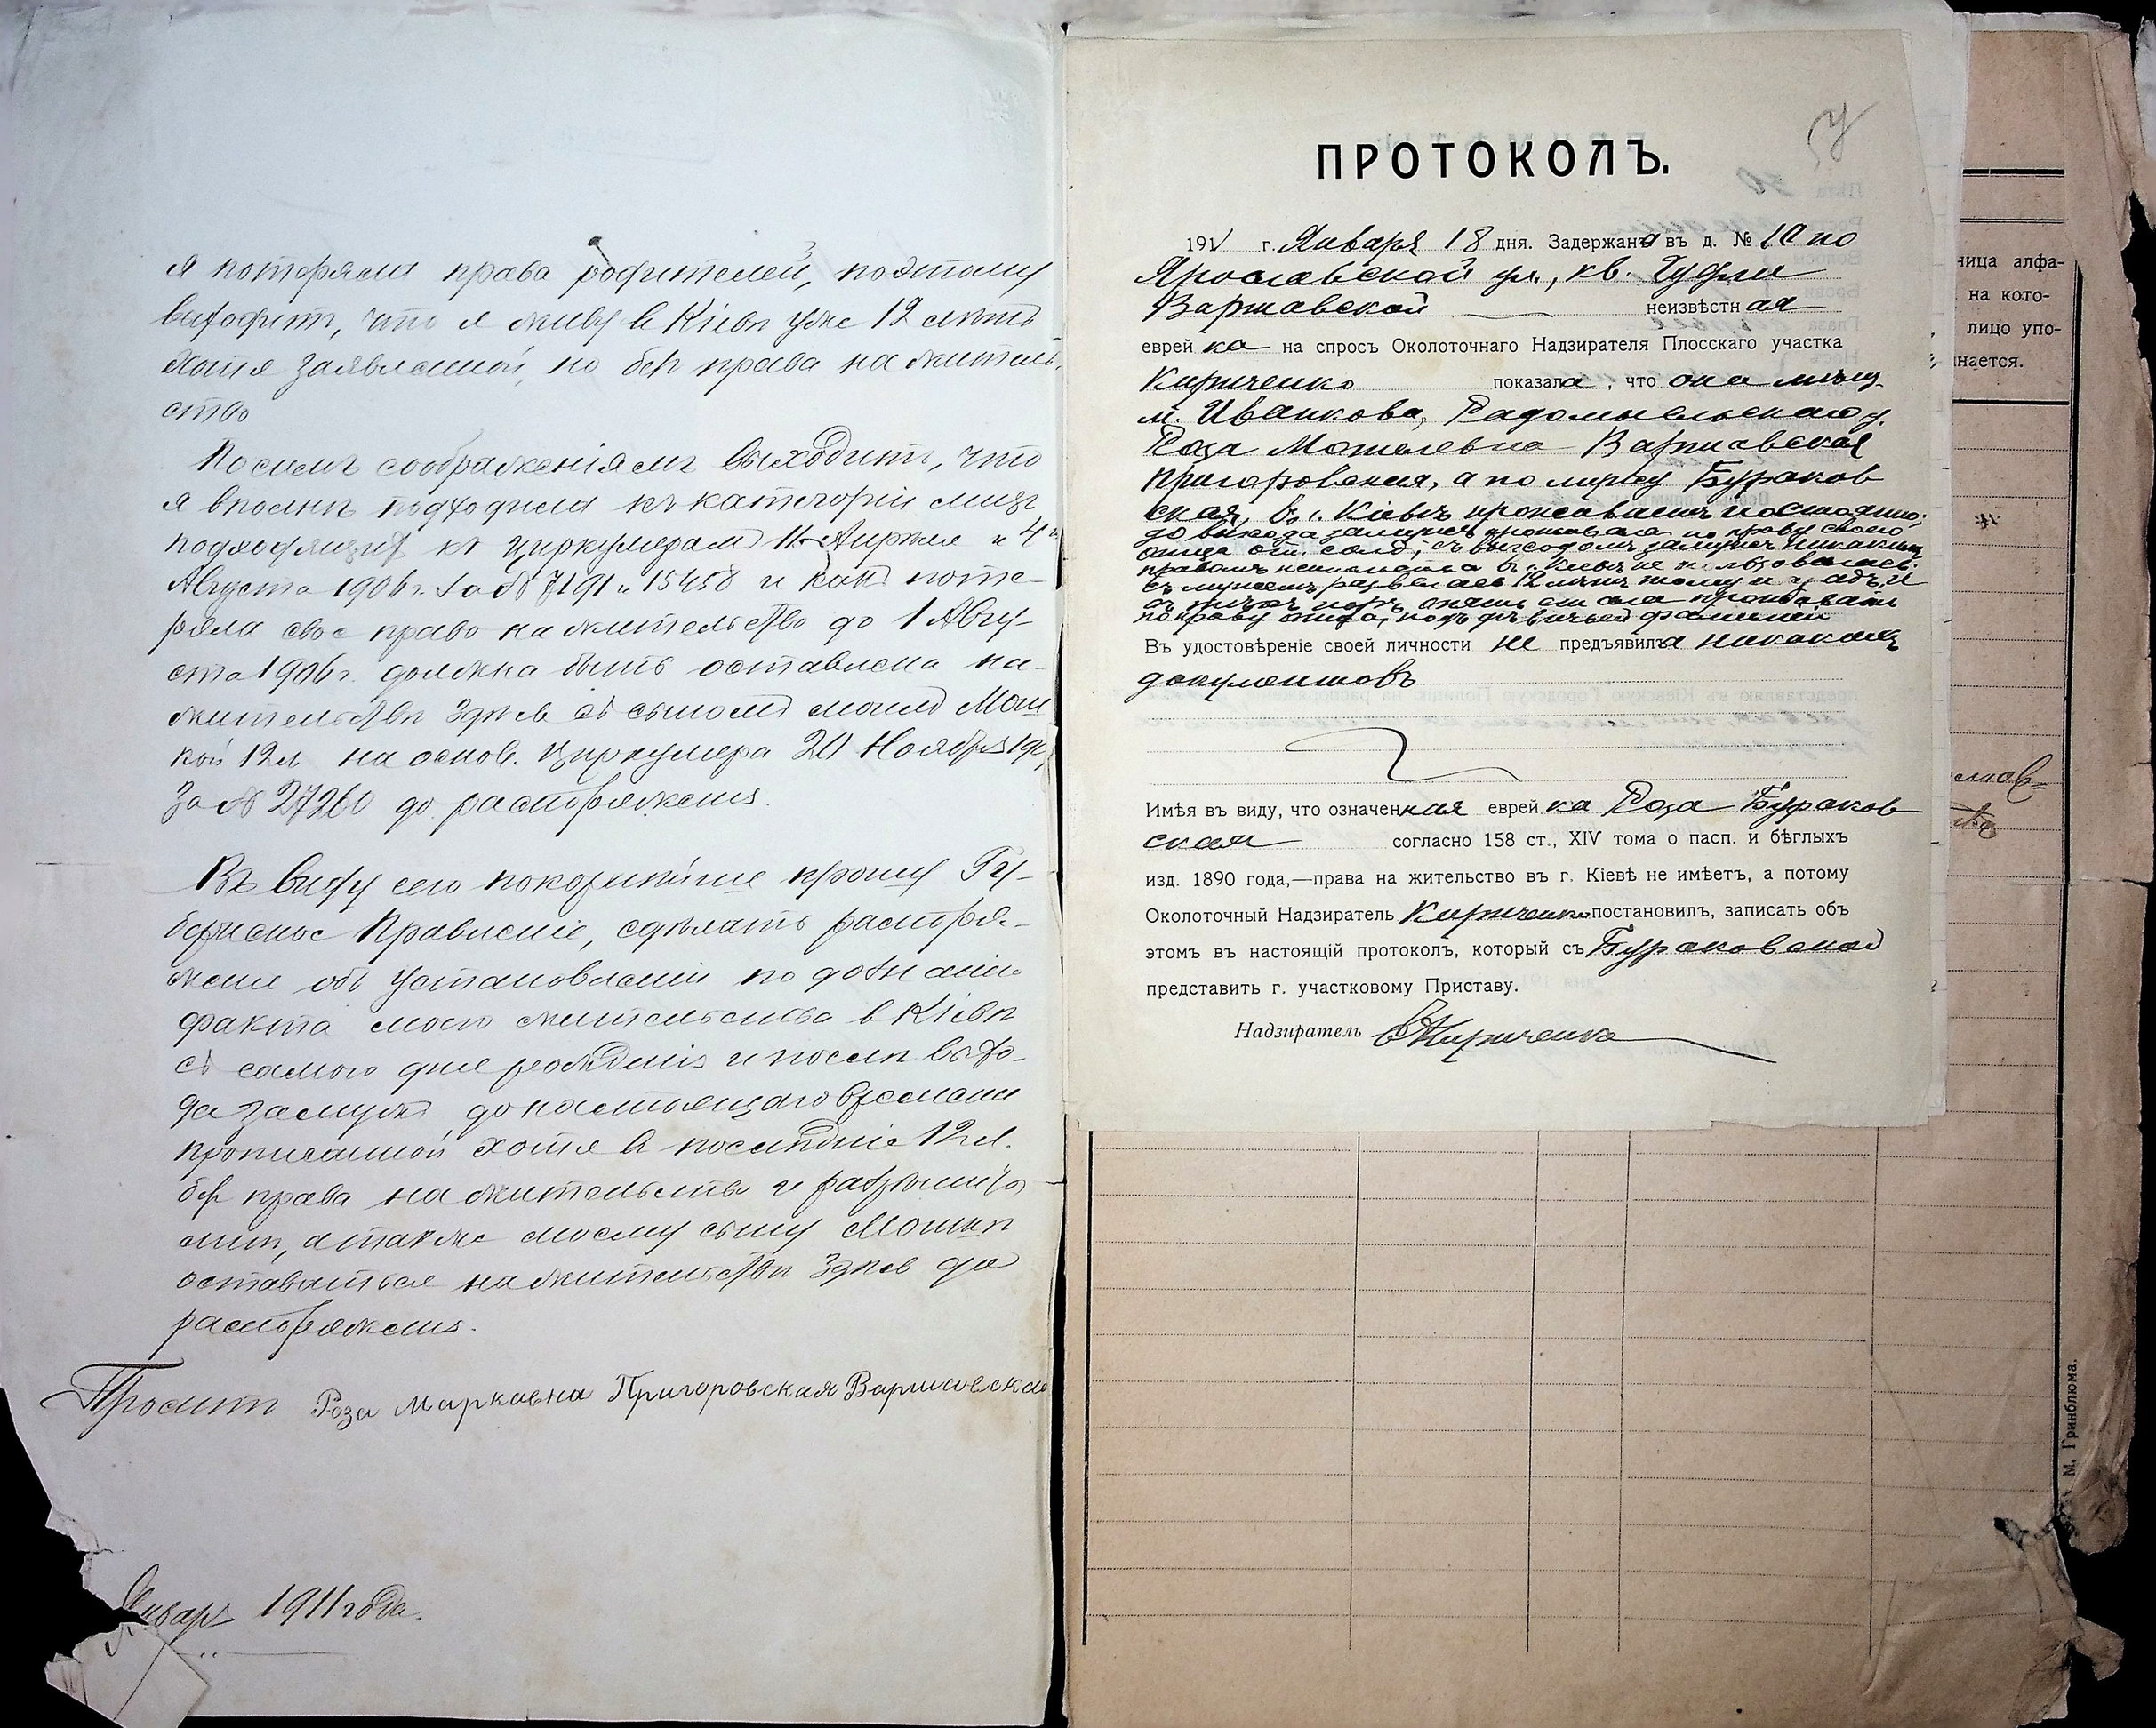 я потеряла права родителей, поэтому
выходит, что я живу в Кіевѣ уже 12 лѣтъ
хотя заявленной, но без права на житель-
ство
По симъ соображеніямъ выходитъ, что
я вполнѣ подходила къ категоріи лицъ
подходящихъ къ циркулярам Апрѣля и 4го
Августа 1906 г. за № 7191 и 15458 и какъ поте-
ряла свое право на жительство до 1 Авгу-
ста 1906 г. должна быть оставлена на
жительствѣ здѣсь съ сыномъ моимъ Мош
кой 12 л на основ. Циркуляра 20 Ноября
За № 27260 до распоряженія.
Въ виду сего покорнѣйше прошу Гу-
бернское Правленіе, сдѣлать распоря-
женіе объ установленіи по дознанію
факта моего жительства в Кіевѣ
съ самого дня рожденія и послѣ выхо-
да замужъ до настоящаго времени
прописанной хотя в послѣдніе 12 л.
без права на жительство и разрѣшить
мнѣ, а также моему сыну Мошкѣ
оставаться на жительствѣ здѣсь до
распоряженія.
Проситъ Роза Марковна Пригоровская Варшавская
Январь 1911 года.
ПРОТОКОЛЪ.
1911 г. Января 18 дня. Задержана въ д. № 10 по
Ярославской ул., кв.
Варшавской неизвѣстная
еврейка на спросъ Околоточнаго Надзирателя Плосскаго участка
Кириченко показала, что она мѣщ.
м. Иванкова, Радомысльскаго у.
Роза Мотелевна Варшавская
Пригоровская, а по мужу Бураков
ская, въ г. Кіевѣ проживаетъ постоянно;
до выхода замужъ проживала по праву своего
отца отст. солд., съ выходомъ замужъ никакимъ
правомъ жительства в г. Кіевѣ не пользовалась.
съ мужемъ развелась 12 лѣтъ тому назадъ, и
съ тѣхъ поръ опять стала проживать
по праву отца, подъ дѣвичьей фамиліей
Въ удостовѣреніе своей личности не предъявила никакихъ
документовъ
Имѣя въ виду, что означенная еврейка Роза Бураков
ская согласно 158 ст., XIV тома о пасп. и бѣглыхъ
изд. 1890 года,—права на жительство въ г. Кіевѣ не имѣетъ, а потому
Околоточный Надзиратель Кириченко постановилъ, записать объ
этомъ въ настоящій протоколъ, который съ Бураковской
представить г. участковому Приставу.
Надзиратель Кириченко
ница алфа-
на кото-
лицо упо-
инается.
М. Гринблюма.